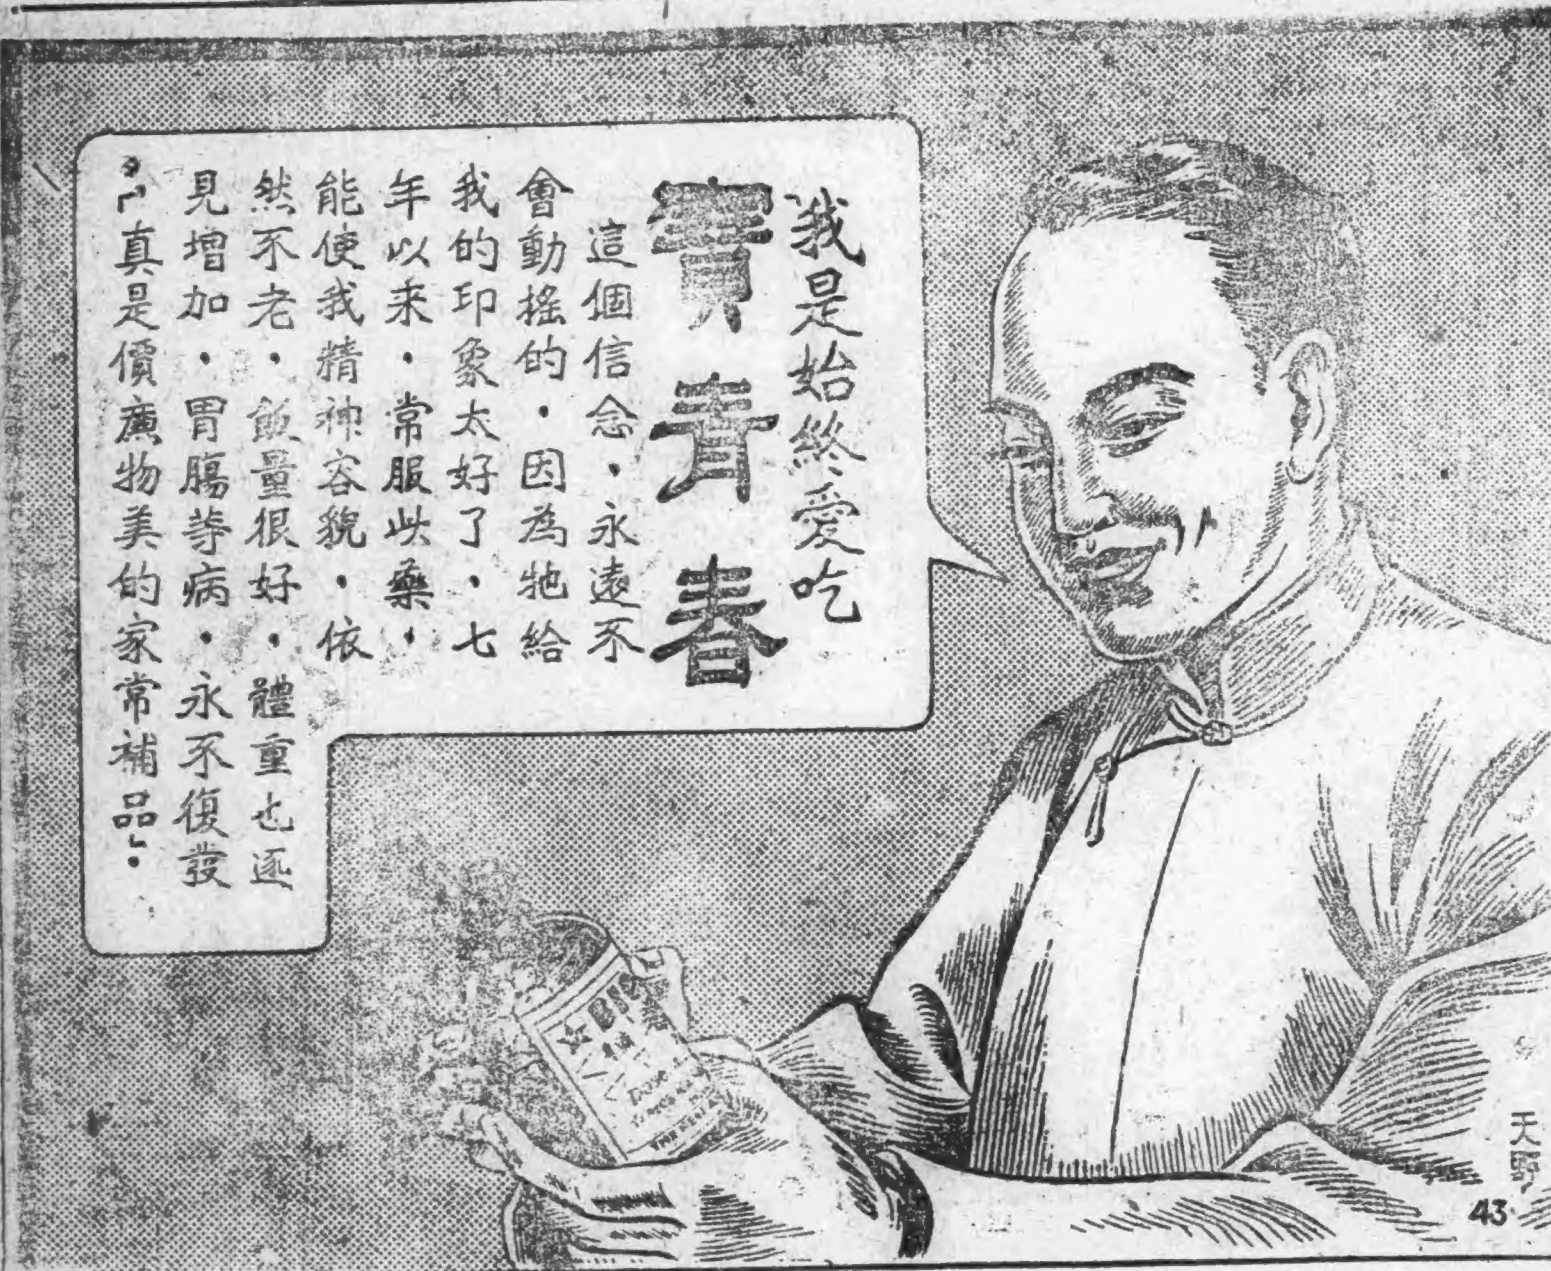 我是始終愛吃
寶青春
這個信念·永遠不
會動搖的·因為牠給
我的印象太好了·七
年以来·常服此藥·
能使我精神容貌·依
然不老·飯量很好·體重也逐
見增加·胃腸等病·永不復發
·「真是價廉物美的家常補品」·
天野
43